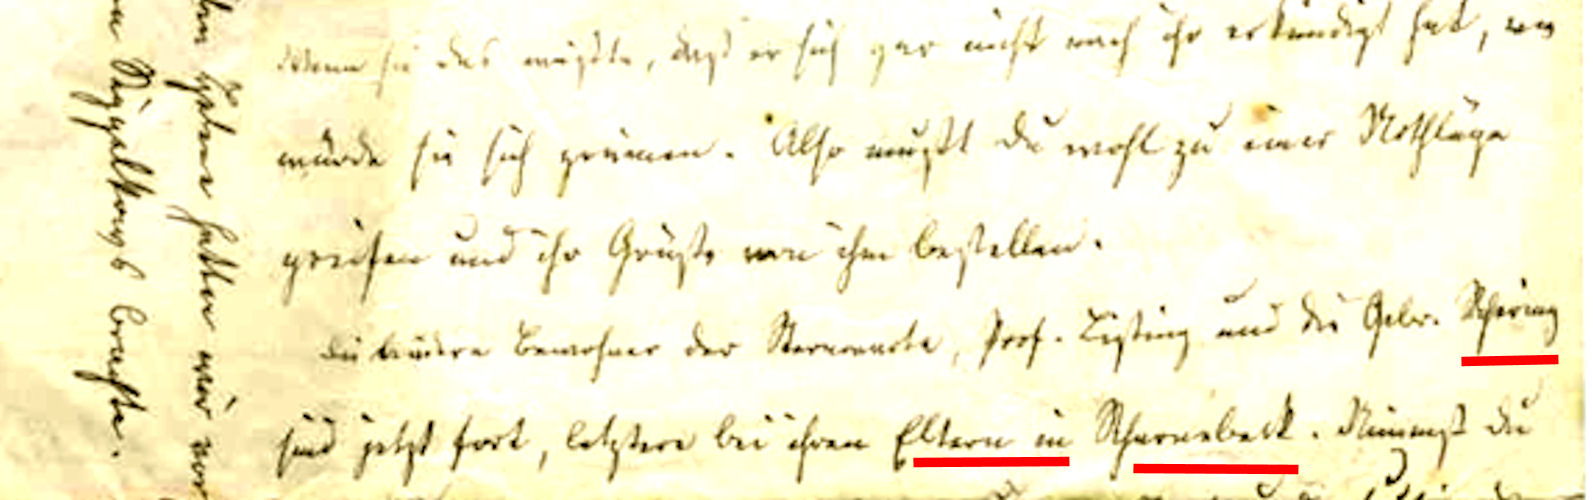 Wenn sie das wüßte, daß er sich gar nicht nach ihr erkundigt hat, so
würde sie sich grämen. Also mußt du wohl zu einer Nothlüge
greifen und ihr Grüße von ihm bestellen.
Die andern Bewohner der Sternwarte, Prof. Listing und die Gebr. Schering
sind jetzt fort, letztere bei ihren Eltern in Scharnebeck. Nimmst du
haben hatten wir vor